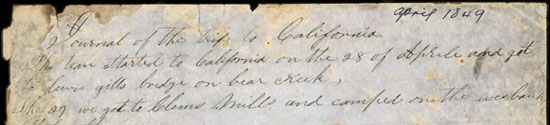 April 1849
Journal of the trip to California
started to California on the 28 of Aprile and got
to lewis gills bridge on bear creek,
The 29 we got to Clems Mills and camped on the